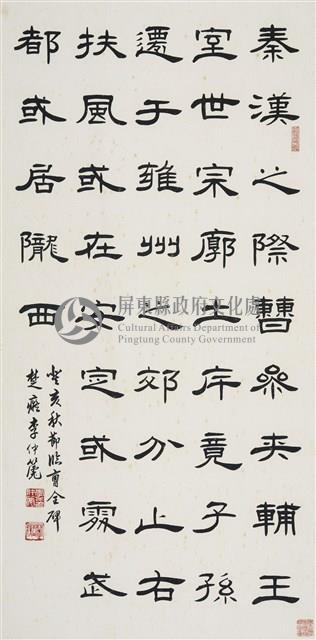 秦漢之際曹參夾輔王
室世宗廓土斥竟子孫
遷于雍州之郊分止右
扶風或在安定或處武
都或居隴西
癸亥秋節臨曹全碑
楚 李仲篪
屏東縣政府文化處
Cultural Affairs Department of
Pingtung County Government